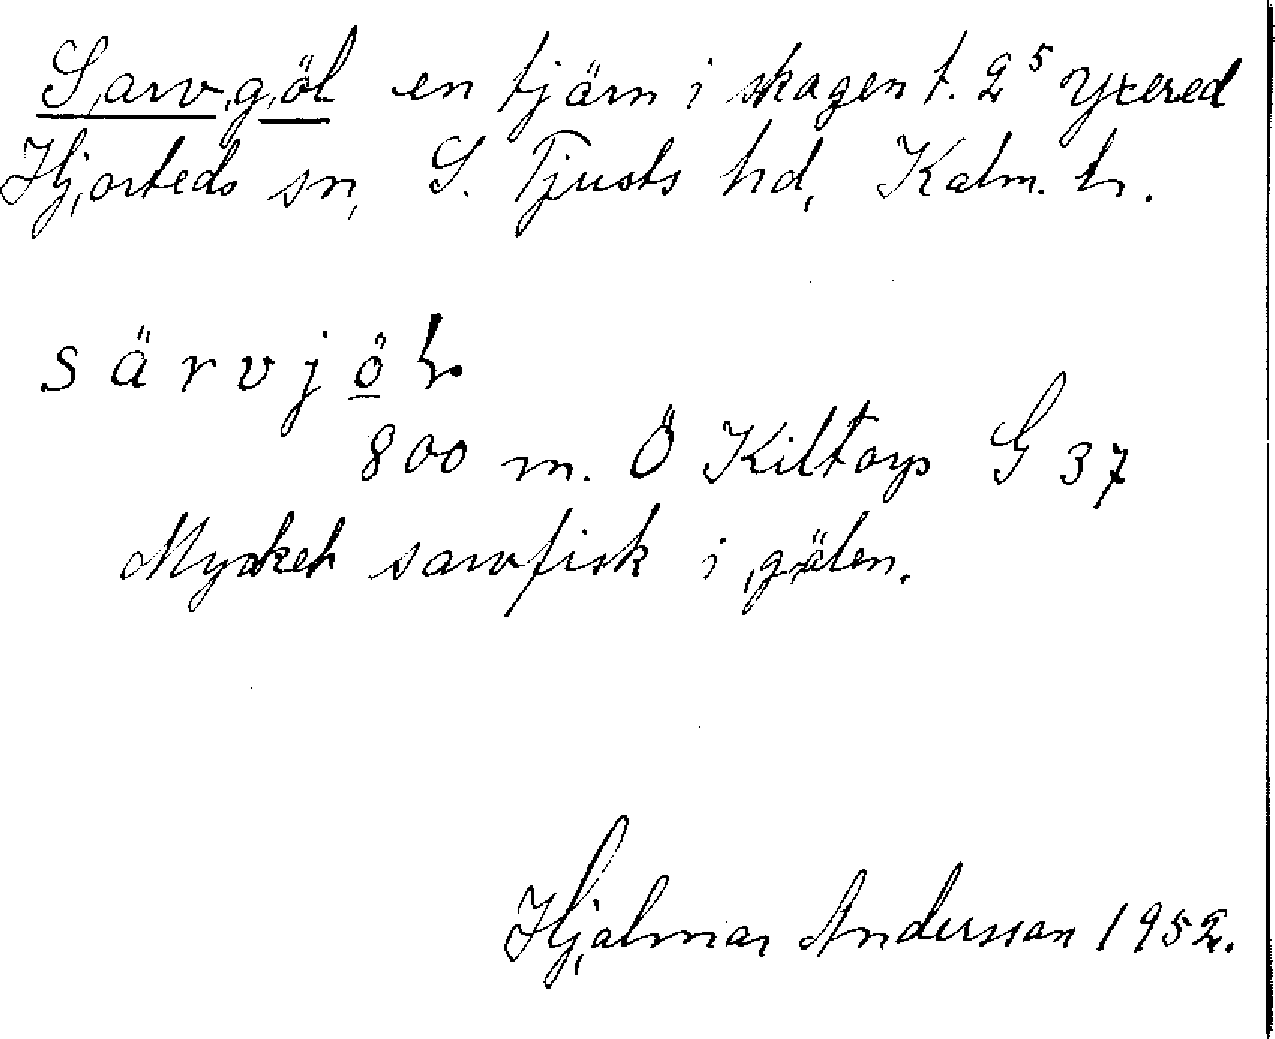 Sarvgöl en tjärn i skogen t. 2⁵ Yxered
Hjorteds sn, S. Tjusts hd, Kalm. l.
särvjöl
800 m. Ö Kiltorp G 37
Mycket sarvfisk i gölen.
Hjalmar Andersson 1952.